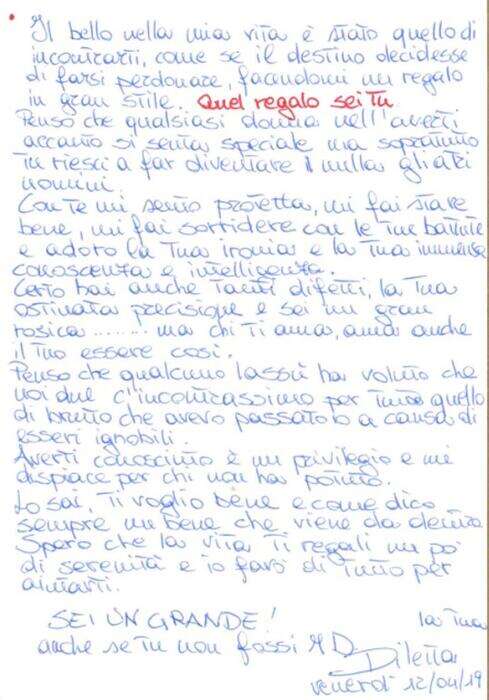 Il bello nella mia vita è stato quello di
incontrarti, come se il destino decidesse
di farsi perdonare, facendomi un regalo
in gran stile. Quel regalo sei tu
Penso che qualsiasi donna nell'averti
accanto si senta speciale ma soprattutto
tu riesci a far diventare il nulla gli altri
uomini.
Con te mi sento protetta, mi fai stare
bene, mi fai sorridere con le tue battute
e adoro la tua ironia e la tua immensa
conoscenza e intelligenza.
Certo hai anche tanti difetti, la tua
ostinata precisione e sei un gran
rosica ........ ma chi ti ama, ama anche
il tuo essere così.
Penso che qualcuno lassù ha voluto che
noi due c'incontrassimo per tutto quello
di brutto che avevo passato a causa di
esseri ignobili.
Averti conosciuto è un privilegio e mi
dispiace per chi non ha potuto.
Lo sai, ti voglio bene e come dico
sempre un bene che viene da dentro
Spero che la vita ti regali un po'
di serenità e io farò di tutto per
aiutarti.
SEI UN GRANDE! la tua
anche se tu non fossi MD Diletta
venerdì 12/04/19